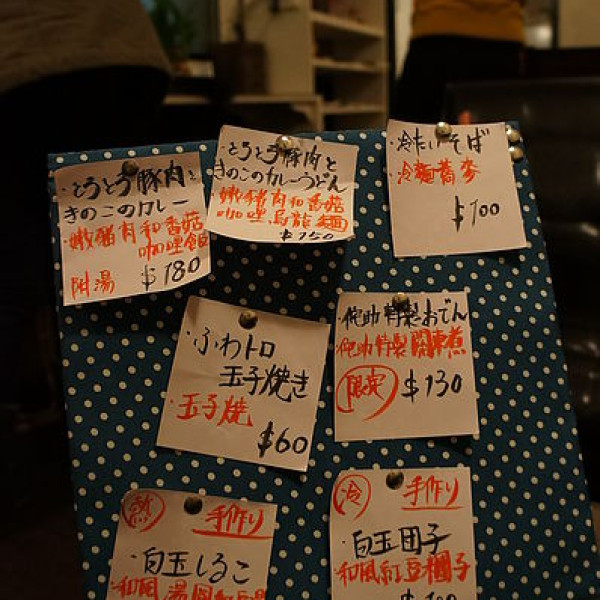 ・とろとろ豚肉と
きのこのカレー
・嫩豬肉和香菇
咖哩飯
附湯 $180
・とろとろ豚肉と
きのこのカレーうどん
・嫩豬肉和香菇
咖哩烏龍麵
$150
・冷たいそば
・冷麵蕎麥
$100
・ふわトロ
玉子焼き
・玉子燒
$60
・侘助特製おでん
・侘助特製關東煮
限定 $130
熱 手作り
・白玉しるこ
・和風湯圓紅豆湯
冷 手作り
・白玉団子
・和風紅豆糰子